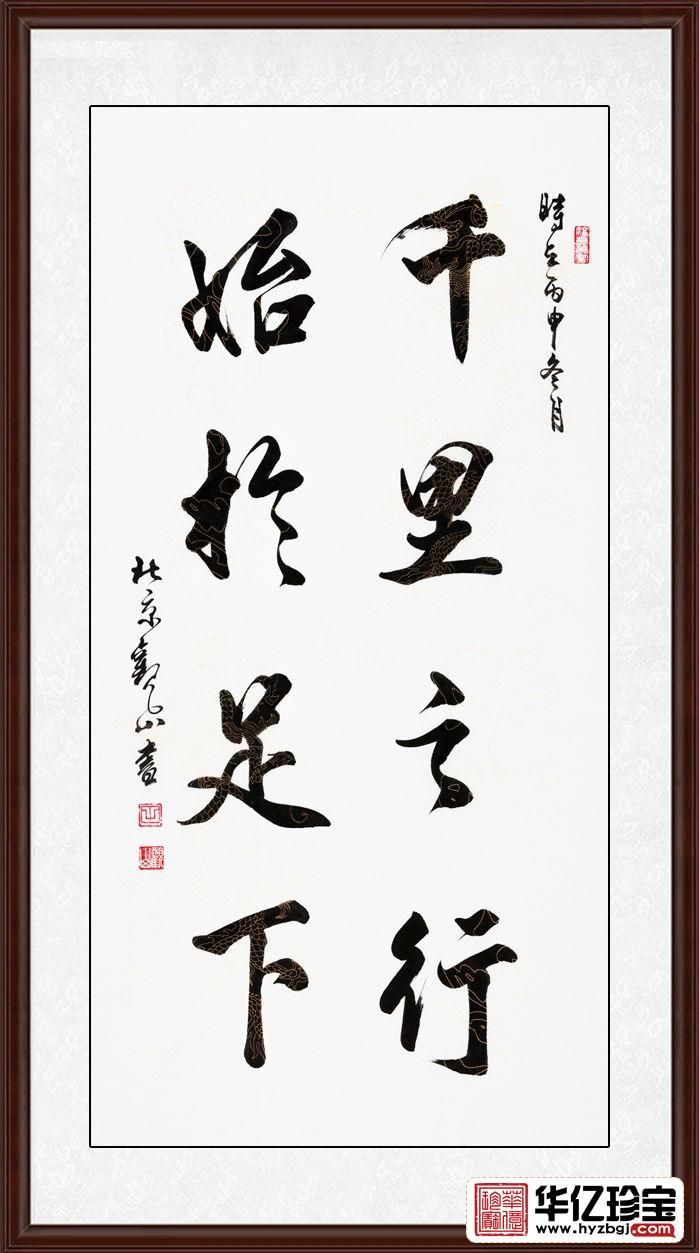 時在丙申冬月
千里之行
始於足下
北京觀山書
华亿珍宝
www.hyzbgj.com